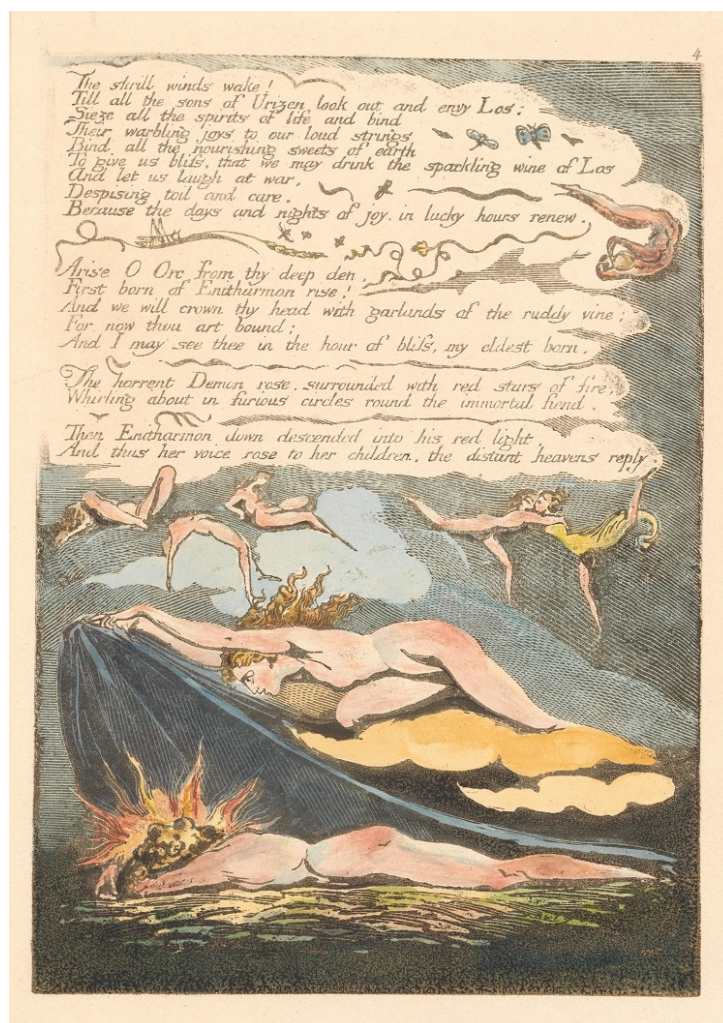 4
The shrill winds wake!
Till all the sons of Urizen look out and envy Los:
Sieze all the spirits of life and bind
Their warbling joys to our loud strings
Bind all the nourishing sweets of earth
To give us bliss, that we may drink the sparkling wine of Los
And let us laugh at war,
Despising toil and care,
Because the days and nights of joy, in lucky hours renew.
Arise O Orc from thy deep den,
First born of Enitharmon rise!
And we will crown thy head with garlands of the ruddy vine;
For now thou art bound;
And I may see thee in the hour of bliss, my eldest born.
The horrent Demon rose, surrounded with red stars of fire,
Whirling about in furious circles round the immortal fiend.
Then Enitharmon down descended into his red light,
And thus her voice rose to her children, the distant heavens reply.